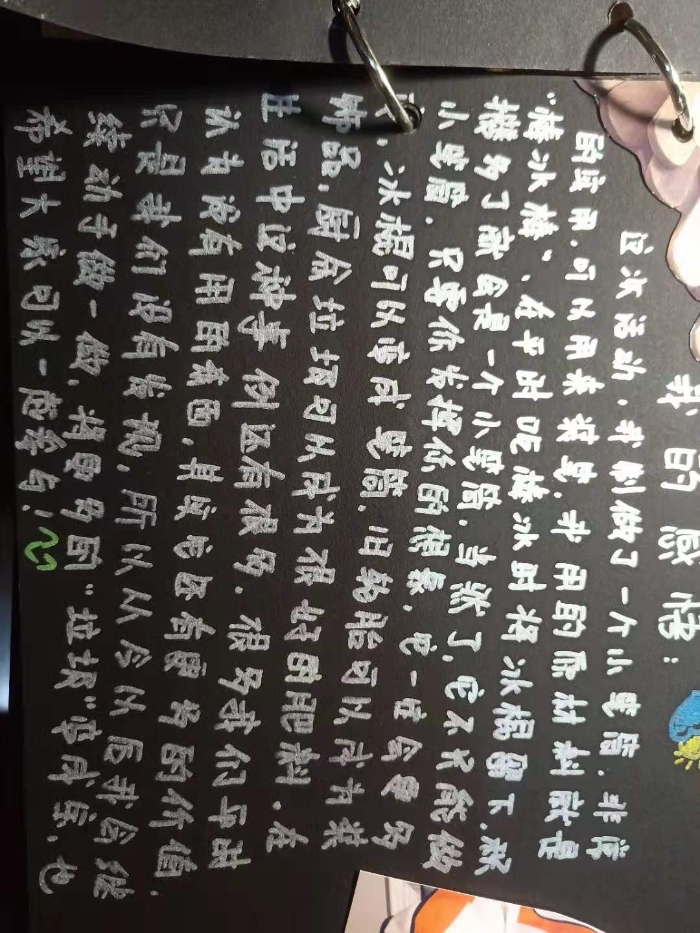 我的感悟：
这次活动，我制做了一个小笔筒，非常
的实用，可以用来装笔，我用的原材料就是
“棒冰棒”，在平时吃棒冰时将冰棍留下，积
攒多了就会是一个小笔筒，当然了，它不只能做
小笔筒，只要你发挥你的想象，它一定会更多
，冰棍可以变成笔筒，旧轮胎可以成为装
饰品，厨余垃圾可以成为很好的肥料，在
生活中这种事例还有很多，很多我们平时
认为没有用的东西，其实它还有更多的价值，
只是我们没有发现，所以从今以后我会继
续动手做一做，将更多的“垃圾”变成宝，也
希望大家可以一应参与！